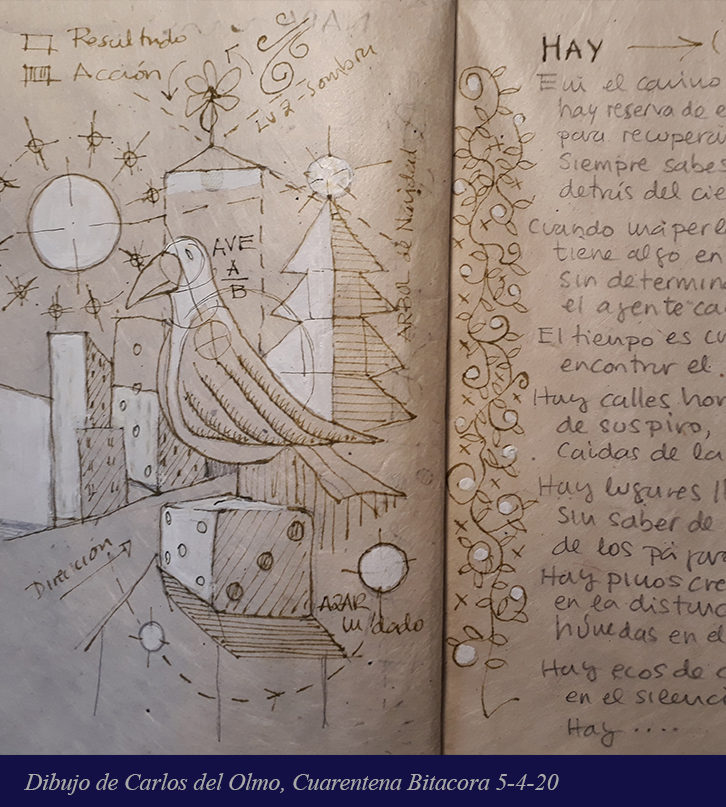 Resultado
Acción
Luz-Sombra
AVE
A
B
ARBOL de Navidad
Dirección
AZAR
un dado
HAY
En el camino
hay reserva de
para recupera
Siempre sabes
detrás del cie
Cuando
tiene algo en
Sin determin
el agente ca
El tiempo es cu
encontrar el
Hay calles hor
de suspiro,
Caidas de la
Hay lugares
Sin saber de
de los pájar
Hay pinos cre
en la distanc
húmedas en el
Hay ecos de
en el silenci
Hay ....
Dibujo de Carlos del Olmo, Cuarentena Bitacora 5-4-20